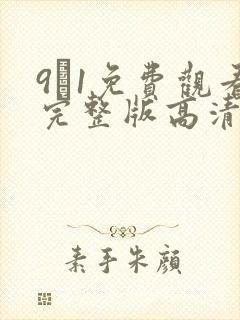 91免費觀看
完整版高清
素手朱顏